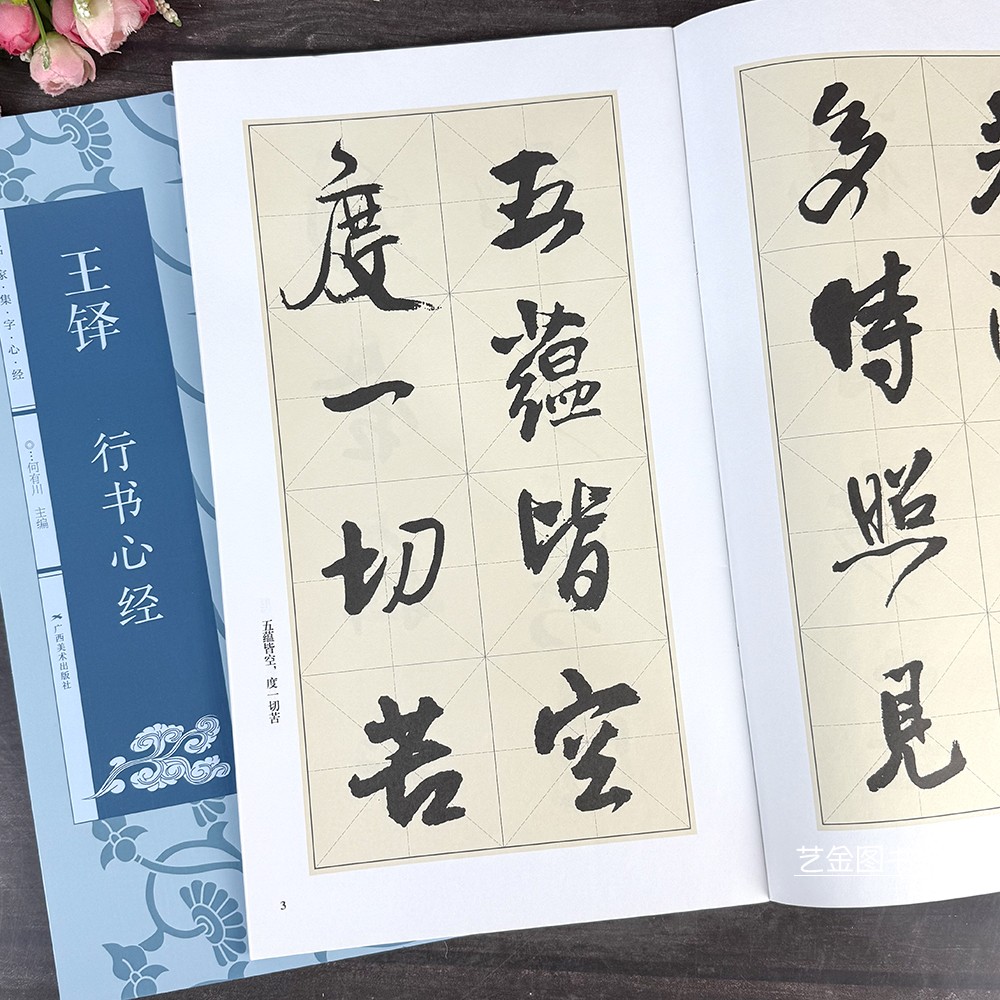 王铎
行书心经
家·集·字·心·经
◎…何有川 主编
广西美术出版社
五蘊皆空
度一切苦
五蕴皆空，度一切苦
3
多時照見
艺金图书